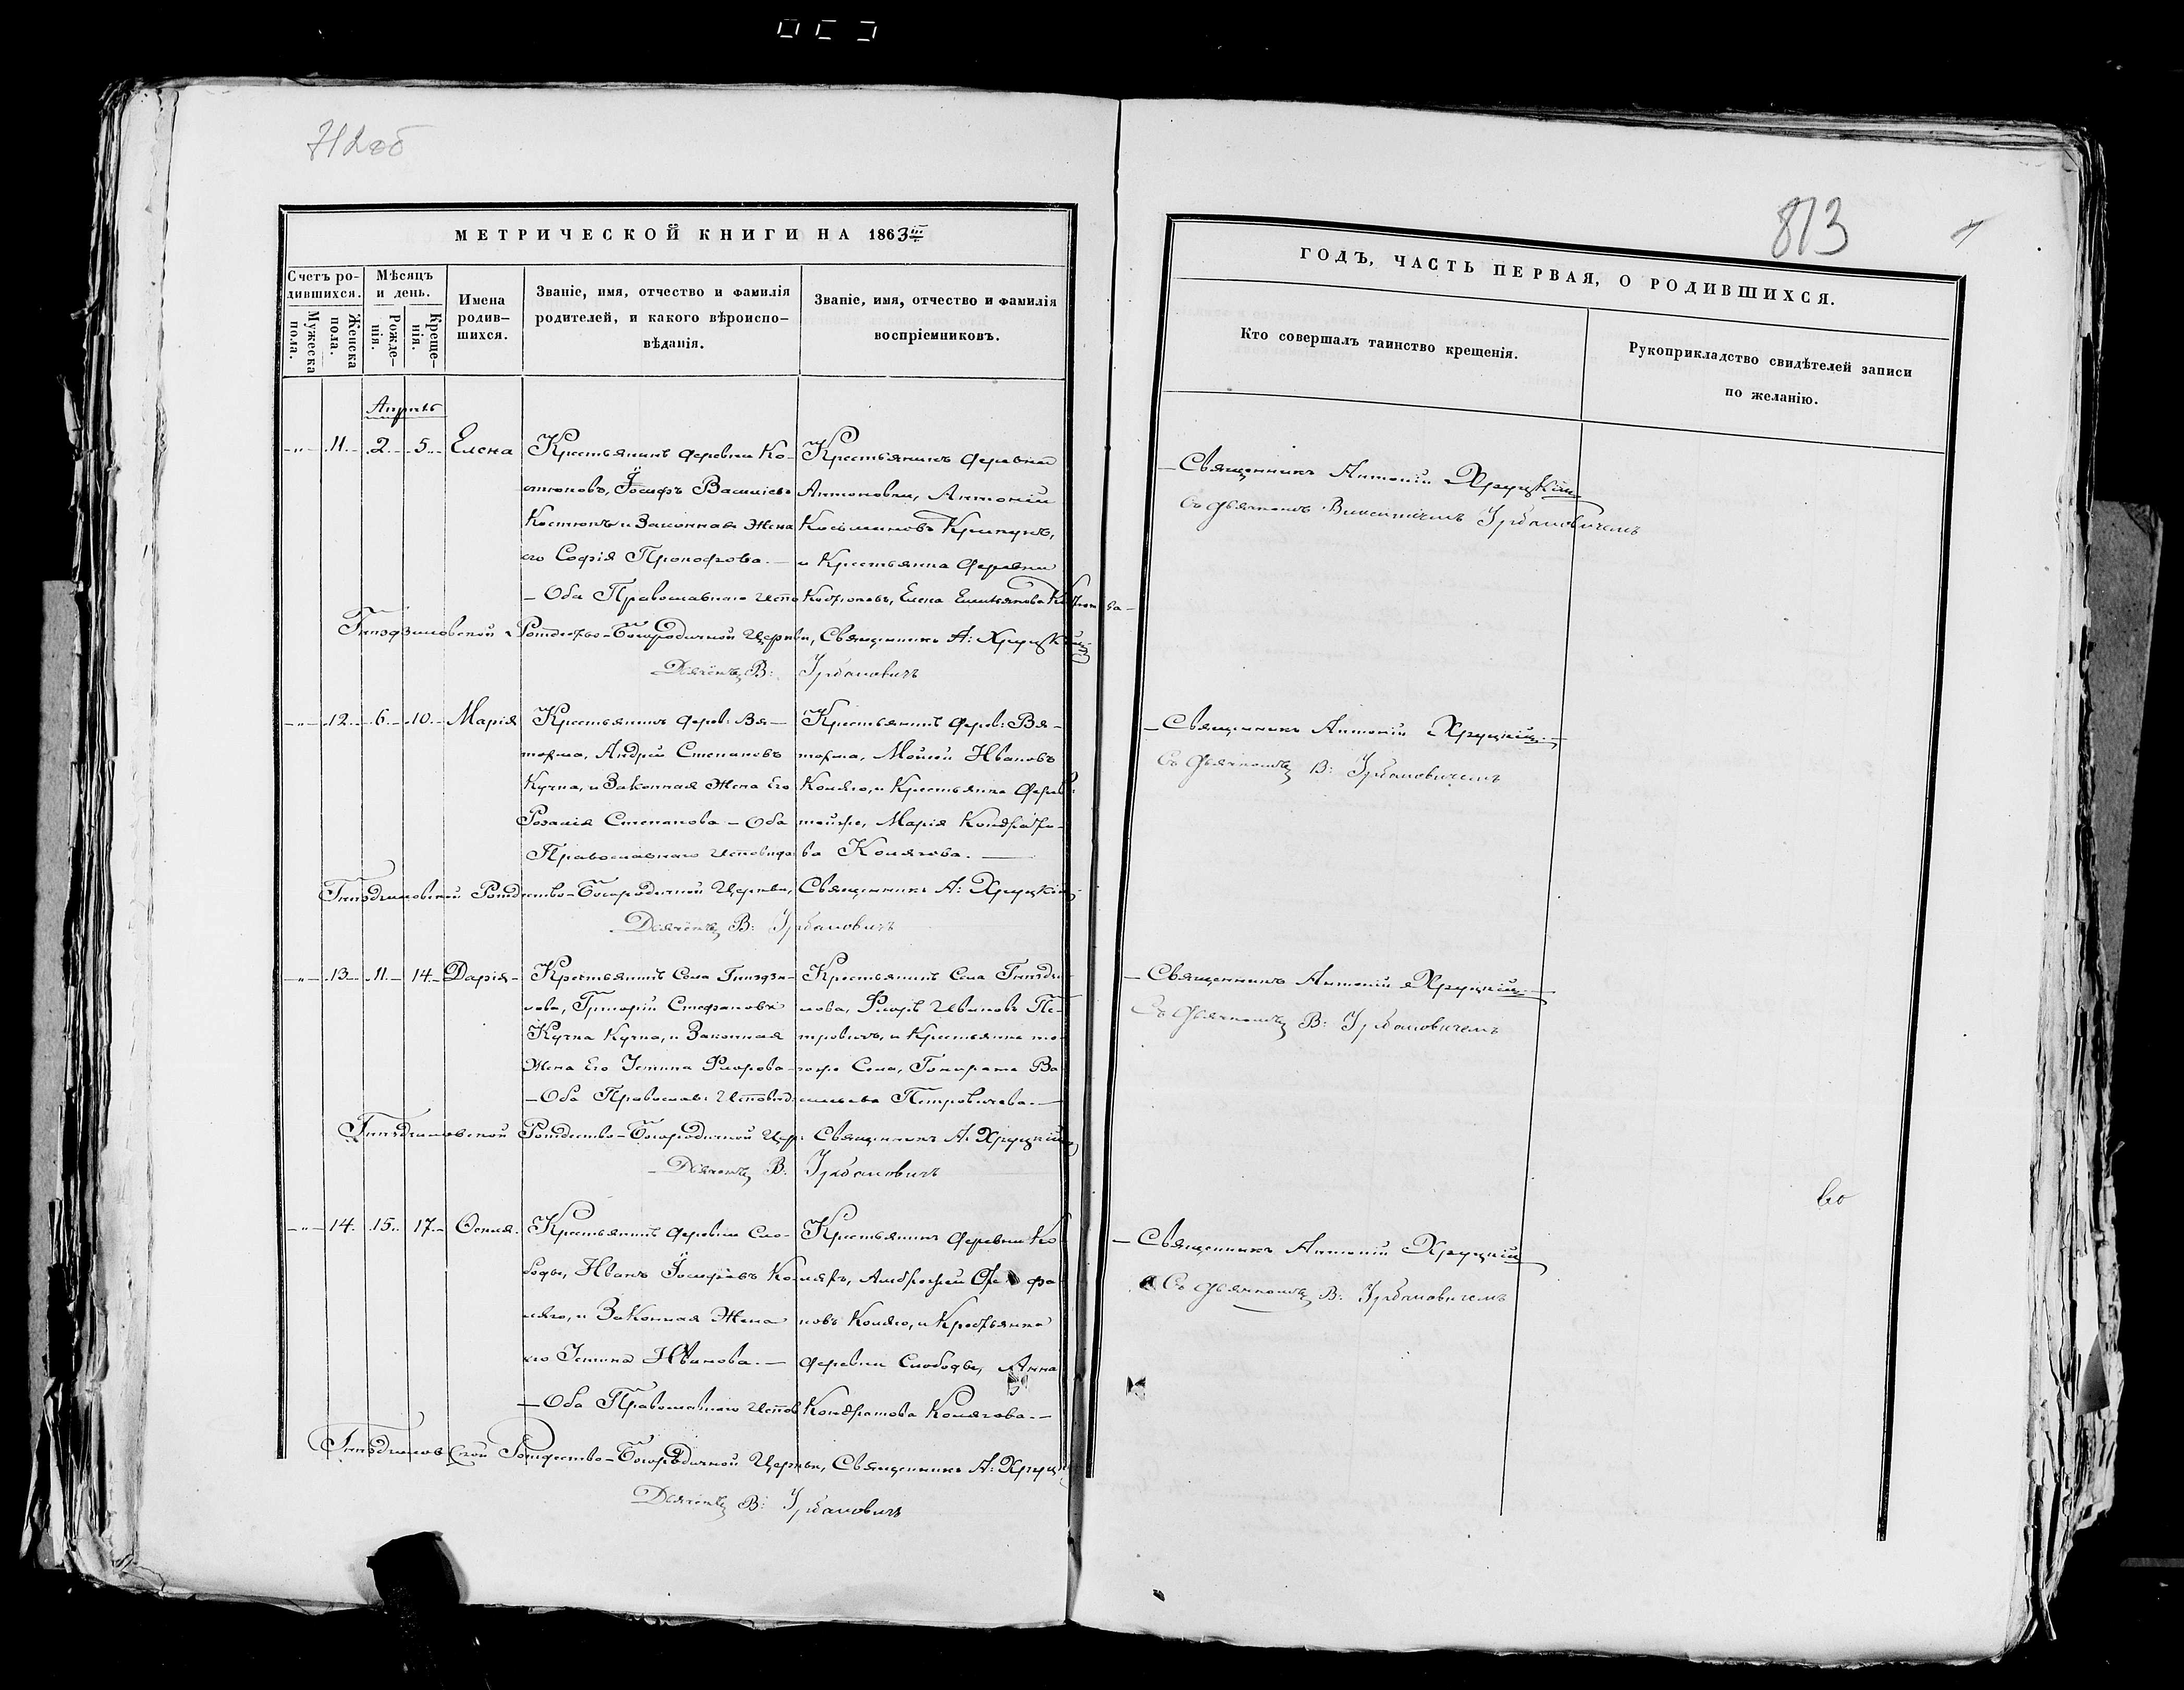 813
МЕТРИЧЕСКОЙ КНИГИ НА 1863й
Счетъ ро-
дившихся.
Мужеска пола.
Женска пола.
Мѣсяцъ
и день.
Рожде-
нія.
Креще-
нія.
Имена
родив-
шихся.
Званіе, имя, отчество и фамилія
родителей, и какого вѣроиспо-
вѣданія.
Званіе, имя, отчество и фамилія
воспріемниковъ.
Апрѣль
11. 2. 5. Елена
Крестьянинъ деревни Ко-
стюковъ, Іосифъ Василіевъ
Костюкъ и Законная Жена
его Софія Прокофова.
Оба Православнаго Испо
Крестьянинъ деревни
Антоновки, Антоній
и Крестьянка деревни
Костюковъ, Елена Емильянова
Рождество-Богородичной Церкви, Священникъ А: Хруцкій
Дьячекъ В: Урбановичъ
12. 6. 10. Марія
Крестьянинъ дерев: Вя-
Андрей Степановъ
Кучка, и Законная Жена Его
Розалія Степанова — Оба
Православнаго Исповида
Крестьянинъ дерев: Вя-
Мойсей Ивановъ
Коляго, и Крестьянка дерев:
тойже, Марія Кондрато-
ва Колягова.
Рождество-Богородичной Церкви, Священникъ А: Хруцкій
Дьячекъ В: Урбановичъ
13. 11. 14. Дарія
Крестьянинъ Села Гнезди-
лова, Григорій Стефановъ
Кучка Кучка, и Законная
Жена Его Устина Флорова
Оба Православ: Исповид:
Крестьянинъ Села Гнезди-
лова, Флоръ Ивановъ Пе-
тровичъ, и Крестьянка то-
гоже Села, Гонората Ва
сильева Петровичева.
Рождество-Богородичной Цер: Священникъ А: Хруцкій
Дьячекъ В: Урбановичъ
14. 15. 17.
Крестьянинъ деревни Сло-
боды, Иванъ Іосифовъ Ко-
ляго, и Законная Жена
его Устина Иванова.
Оба Православнаго Испов
Крестьянинъ деревни Ко
новъ Коляго, и Крестьянка
деревни Слободы, Анна
Кондратова Колягова.
Рождество-Богородичной Церкви, Священникъ А: Хруц
Дьячекъ В: Урбановичъ
ГОДЪ, ЧАСТЬ ПЕРВАЯ, О РОДИВШИХСЯ.
Кто совершалъ таинство крещенія.
Рукоприкладство свидѣтелей записи
по желанію.
Священникъ Антоній Хруцкій
Съ дьячкомъ Викентіемъ Урбановичемъ
Священникъ Антоній Хруцкій
Съ дьячкомъ В: Урбановичемъ
Священникъ Антоній Хруцкій
Съ дьячкомъ В: Урбановичемъ
Священникъ Антоній Хруцкій
Съ дьячкомъ В: Урбановичемъ